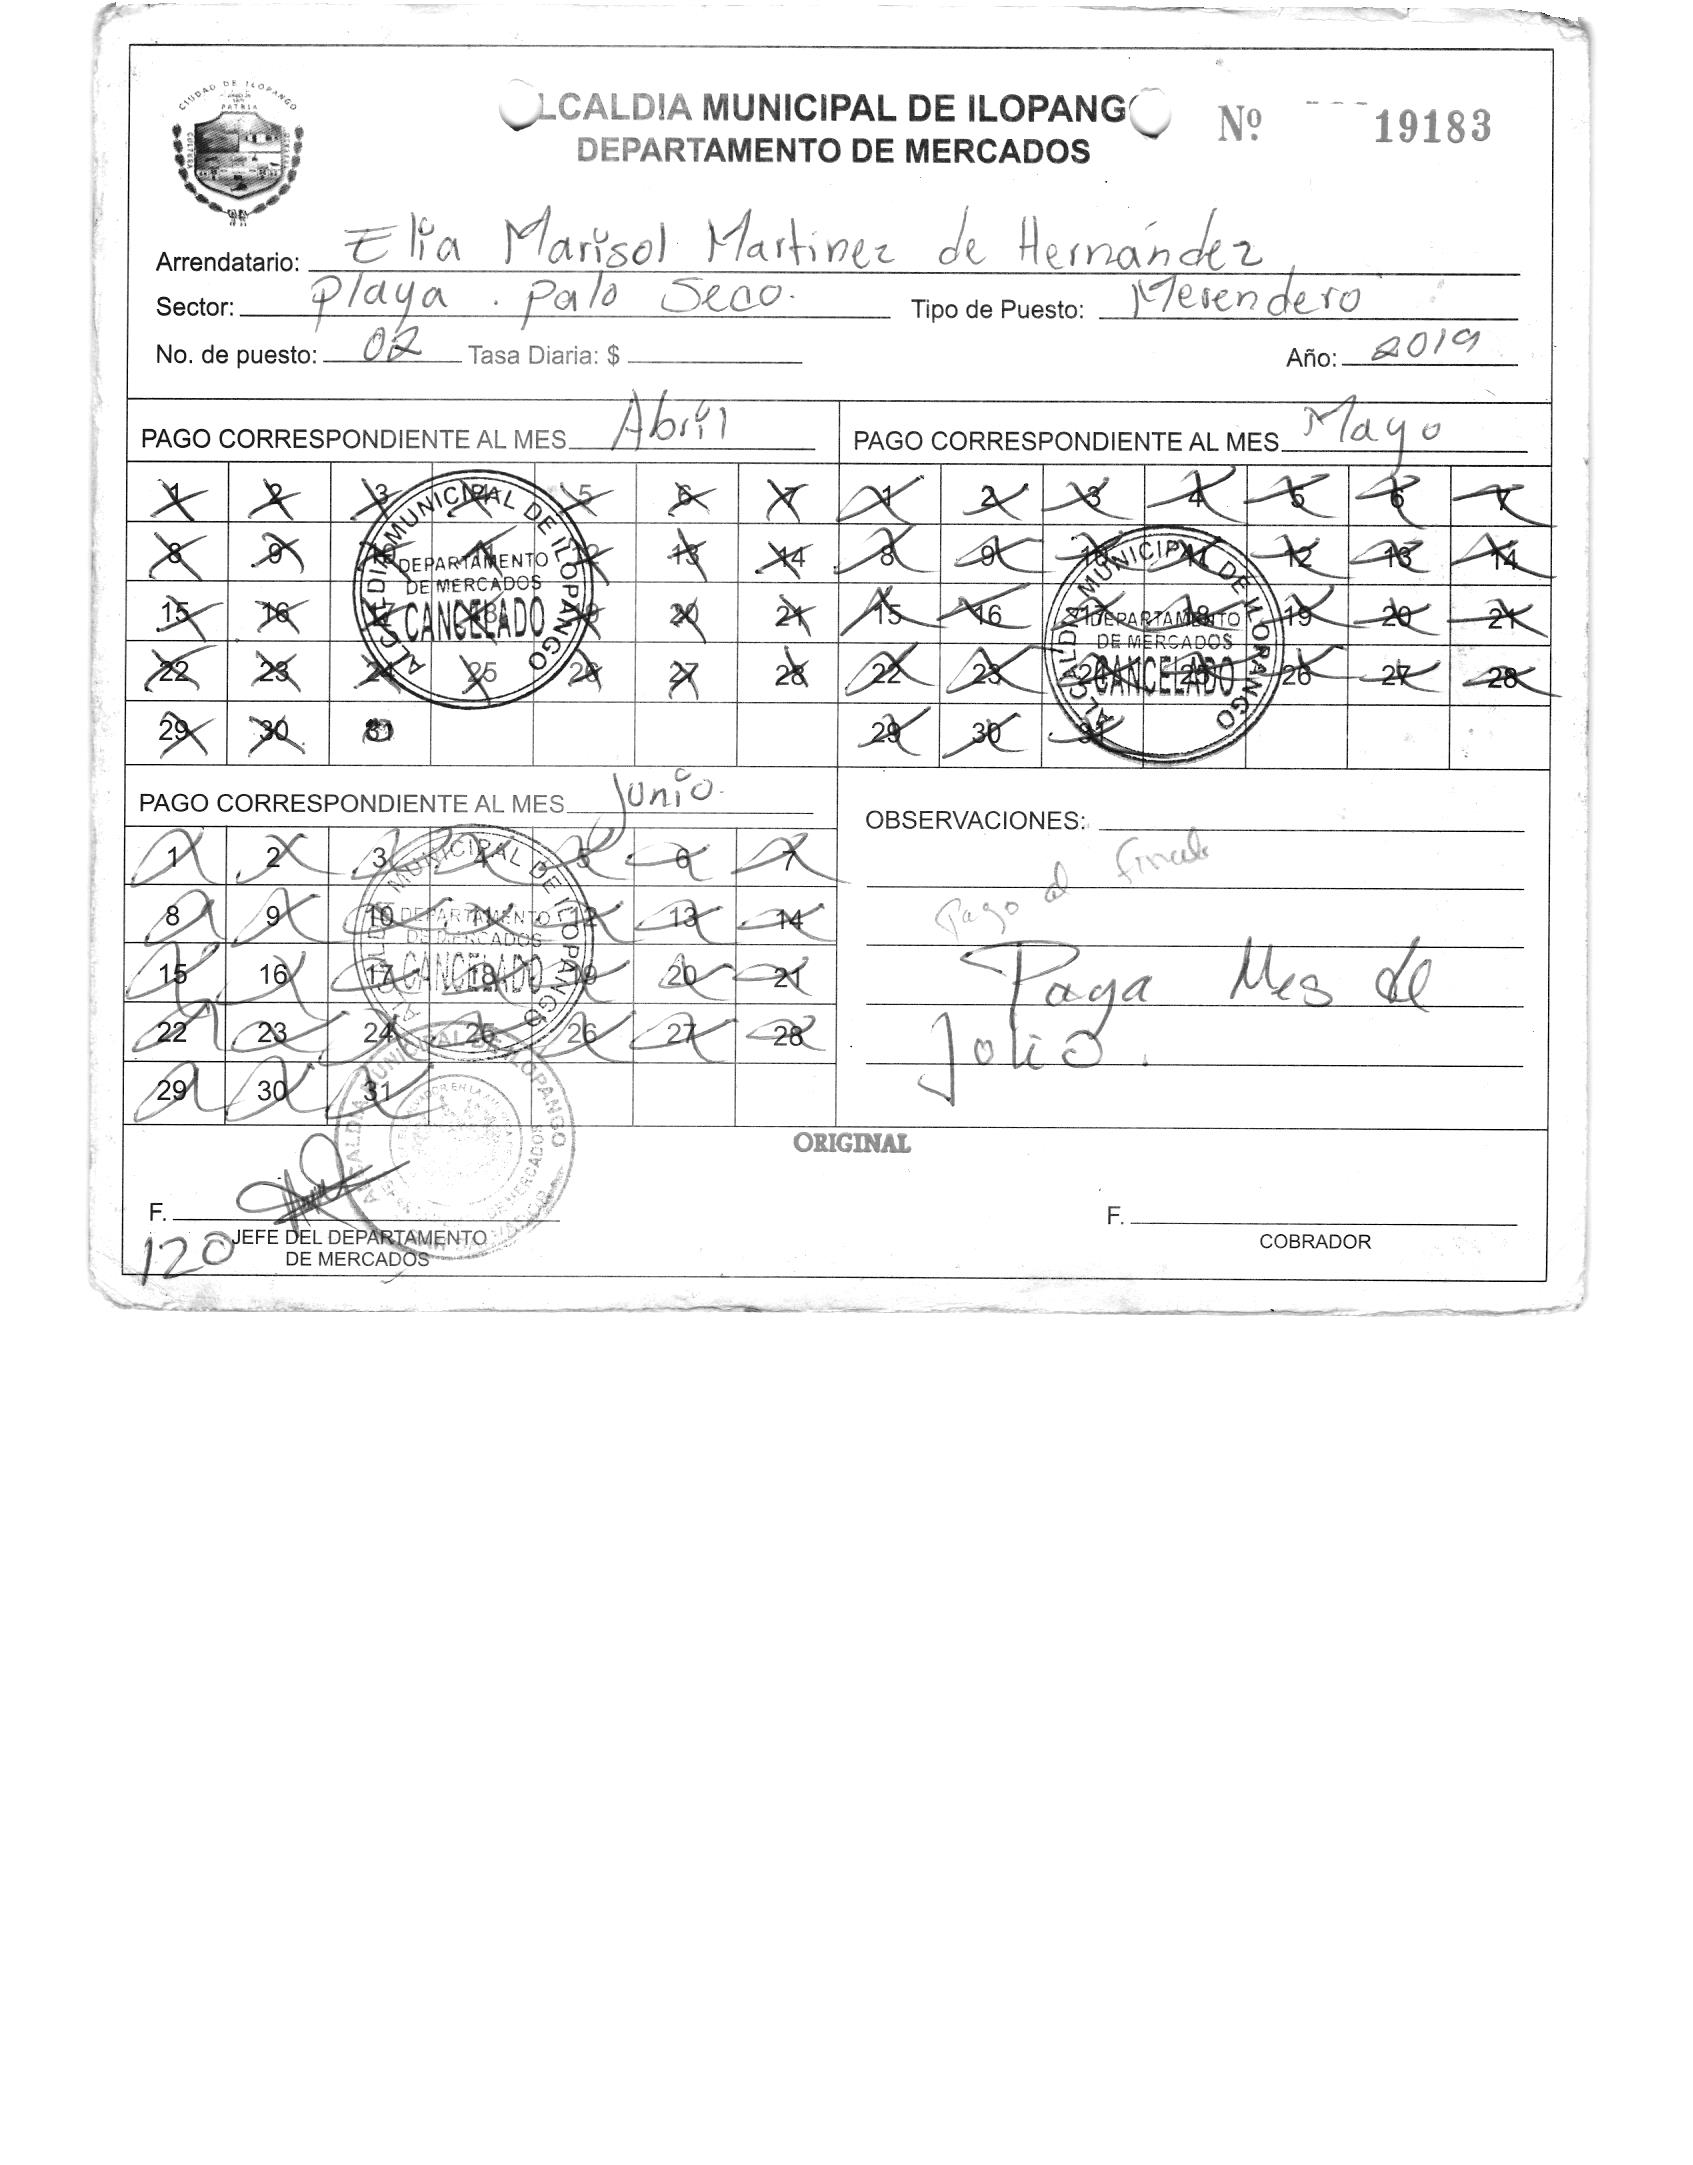 CIUDAD DE ILOPANGO
PATRIA
CULTURA
LCALDIA MUNICIPAL DE ILOPANG
Nº 19183
DEPARTAMENTO DE MERCADOS
Arrendatario: Elia Marisol Martinez de Hernández
Sector: Playa . Palo Seco. Tipo de Puesto: Merendero
No. de puesto: 02 Tasa Diaria: $ Año: 2019
PAGO CORRESPONDIENTE AL MES Abril
1 2 3 4 5 6 7
8 9 10 11 12 13 14
15 16 17 18 19 20 21
22 23 24 25 26 27 28
29 30 31
ALCALDIA MUNICIPAL DE ILOPANGO
DEPARTAMENTO
DE MERCADOS
CANCELADO
PAGO CORRESPONDIENTE AL MES Mayo
1 2 3 4 5 6 7
8 9 10 11 12 13 14
15 16 17 18 19 20 21
22 23 24 25 26 27 28
29 30 31
ALCALDIA MUNICIPAL DE ILOPANGO
DEPARTAMENTO
DE MERCADOS
CANCELADO
PAGO CORRESPONDIENTE AL MES Junio.
1 2 3 4 5 6 7
8 9 10 11 12 13 14
15 16 17 18 19 20 21
22 23 24 25 26 27 28
29 30 31
ALCALDIA MUNICIPAL DE ILOPANGO
DEPARTAMENTO
DE MERCADOS
CANCELADO
OBSERVACIONES:
Pago al
Paga Mes de
Jolio.
ORIGINAL
ALCALDIA MUNICIPAL DE ILOPANGO
DE MERCADOS
F.
JEFE DEL DEPARTAMENTO
DE MERCADOS
120
F.
COBRADOR